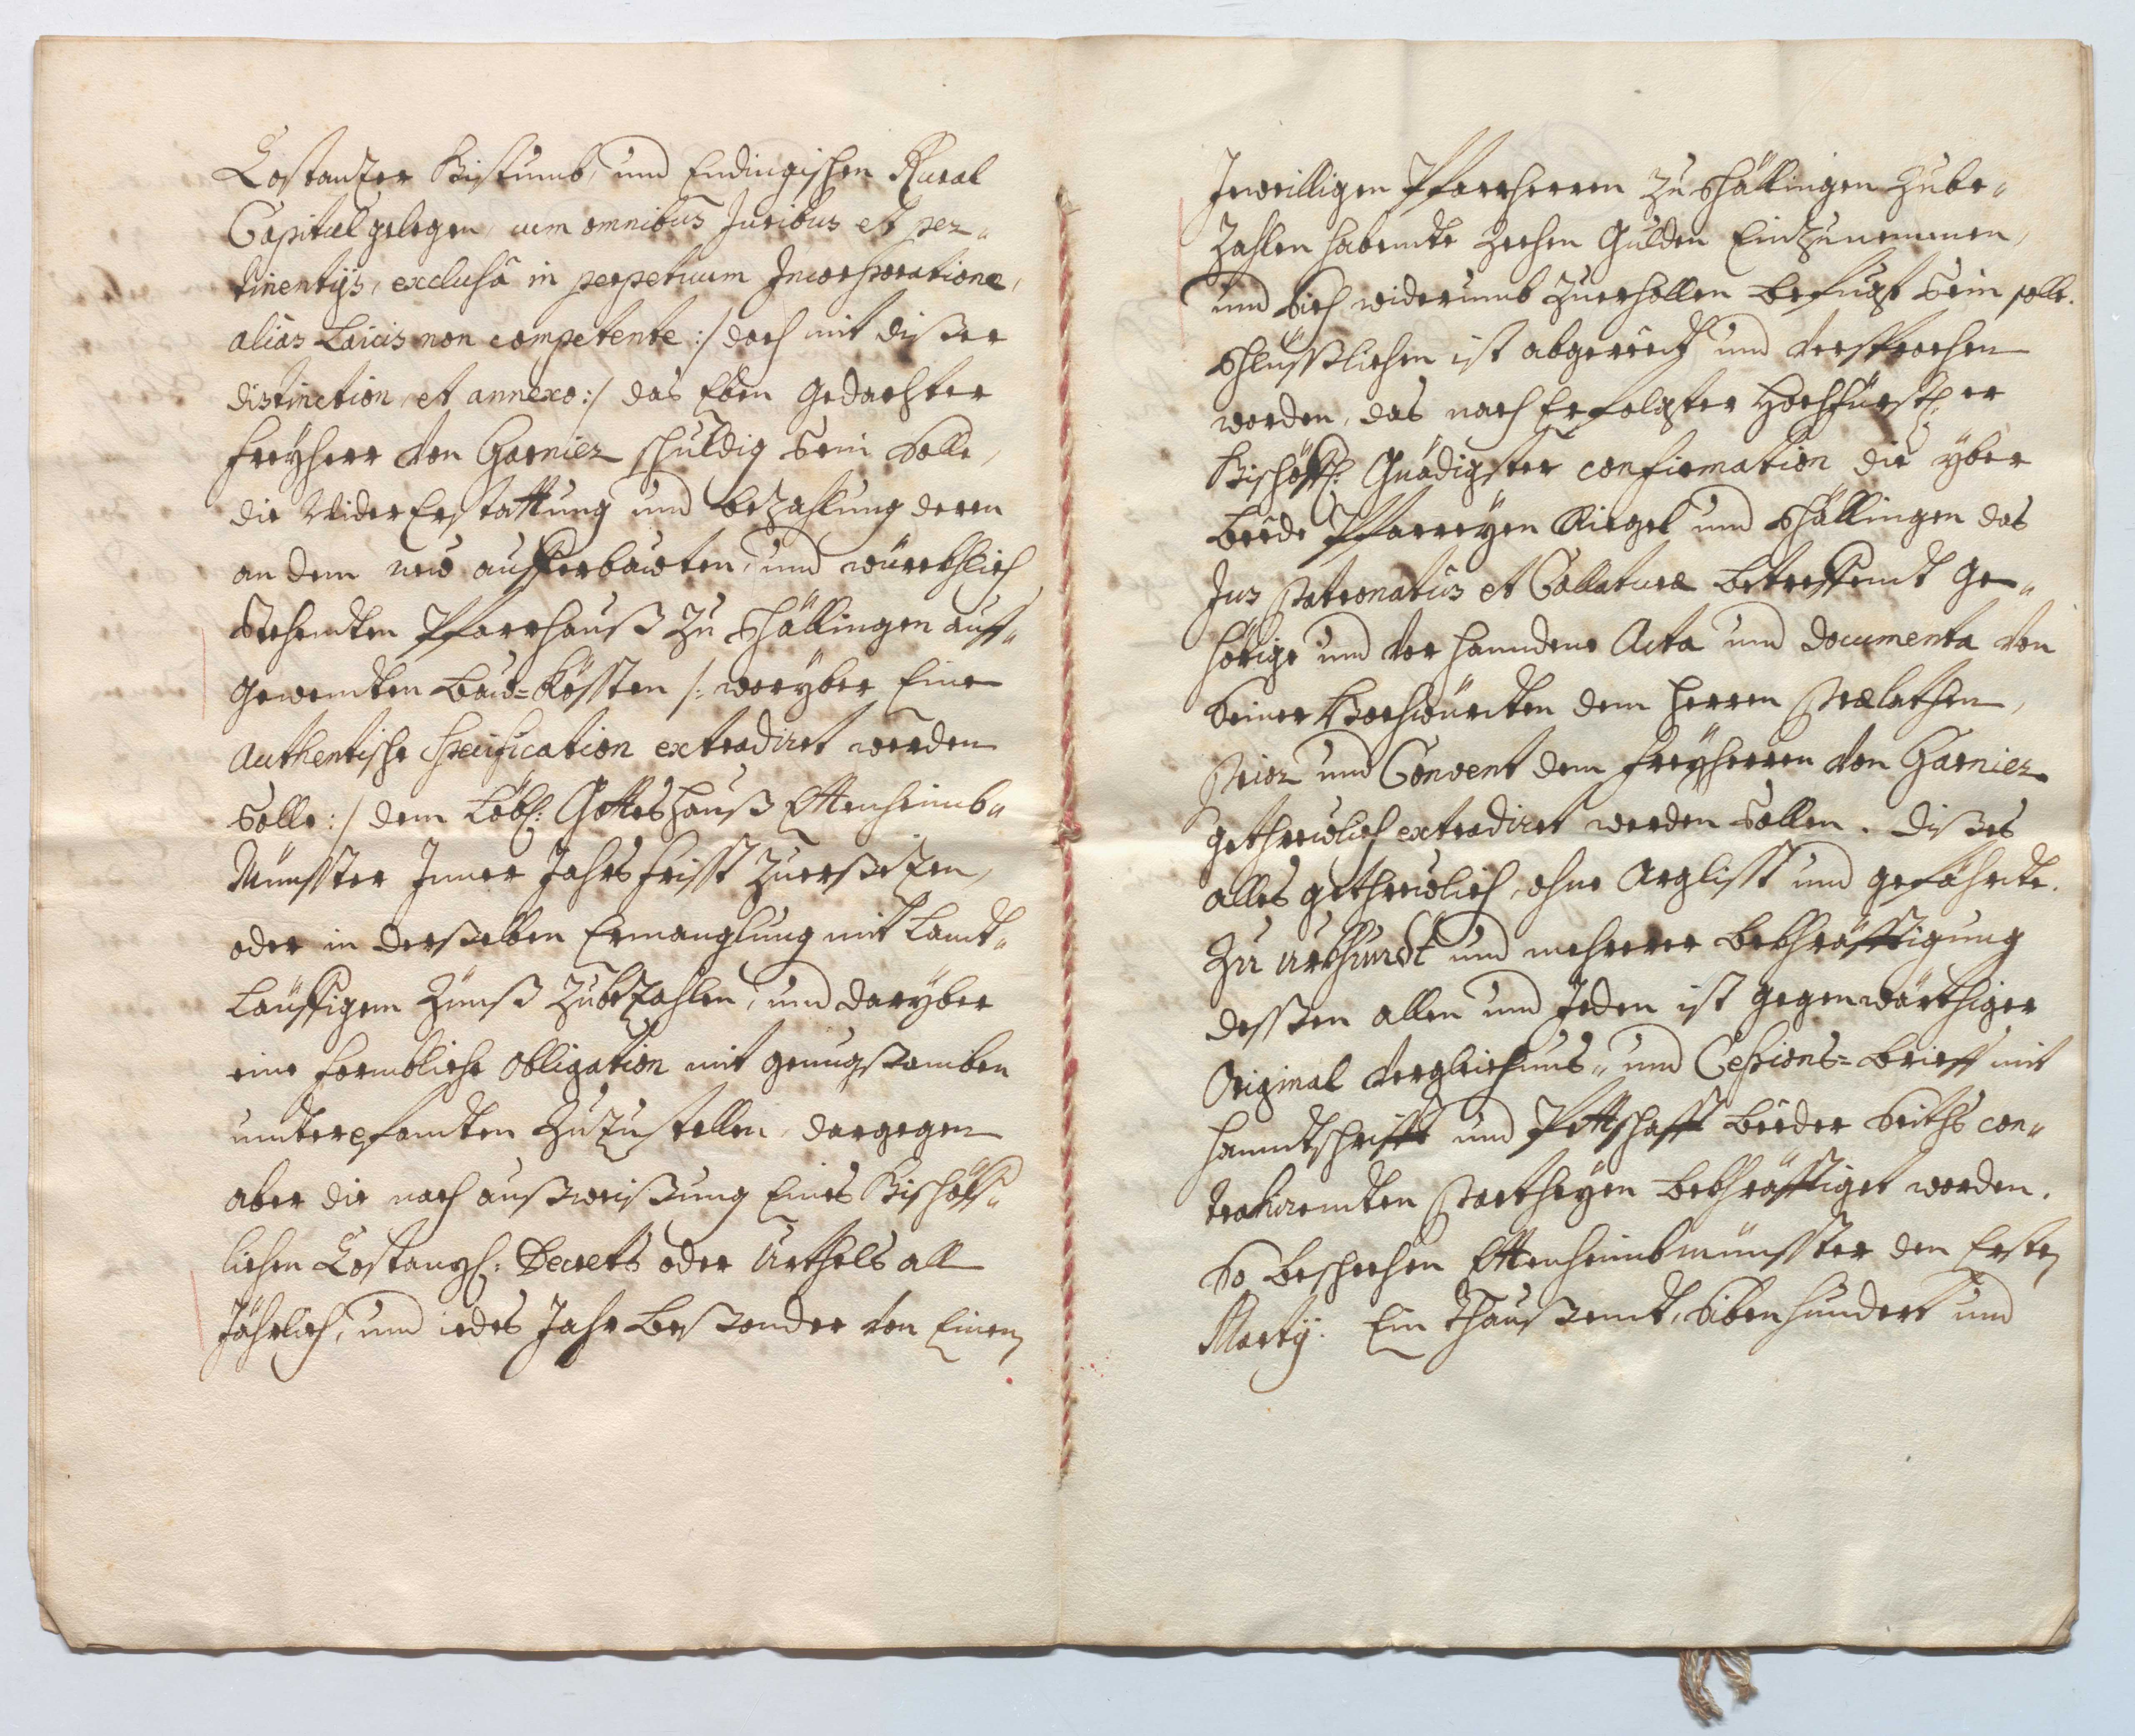 Costantzer Bistumb, und Endingischen Rural
Capitul gelegen, cum omnibus Juribus et per„
tinentÿs, exclusâ in perpetuum Incorporatione,
aliàs Laicis non competente :/ doch mit dißer
distinction, et annexo :/ das Eben gedachter
Freÿherr von Garnier schuldig sein solle,
die WiderErstattung und bezahlung deren
an dem new aufferbawten, und würckhlich
stehendten Pfarrhauß zu Schällingen auff„
gewendten Baw=Kössten /: worÿber Eine
Authentische Specification extradirt werden
solle :/ dem Löbl: Gotteshauß Ettenheimb„
Münster Inner Jahrs frisst zuersezen,
oder in derselben Ermanglung mit Landt„
läuffigem Zünß zubezahlen, und darÿber
eine formbliche obligation mit genugsamben
underpfandten zuzustellen, dargegen
aber die nach außweißung Eines Bischöff„
lichen Costanzl: Decrets oder Urthels all
Jährlich, und iedes Jahr besonder von Einem
Jeweilligen Pfarrherren zu Schällingen zube„
zahlen habendte zechen Gulden Einzunemmen,
und sich widerumb zuerhollen befuegt sein solle.
Schlüßlichen ist abgeredt und versprochen
worden, das nach Erfolgter Hochfürstl. er
Bischöffl: Gnädigster confirmation die ÿber
beede Pfarreÿen Riegel und Schällingen das
Jus Patronatûs et Collaturæ betreffendt ge„
hörige und vorhandene Acta und documenta von
seiner Hochwürdten dem Herren Prælathen,
Prior und Convent dem Freÿherren von Garnier
gethrewlich extradirt werden sollen. Dißes
alles gethrewlich, ohne Arglisst und gefährdte.
Zu Urkhundt und mehrerer bekhräfftigung
deßen allen und Jeden ist gegenwärthiger
Original vergleichuns„ und Cessions=brieff mit
handtschrifft und Pettschafft beeder seiths con„
trahirendten Partheÿen bekhräfftiget worden.
So beschechen Ettenheimbmünsster den Ersten
Martÿ: Ein Thaußendt, sibenhundert und